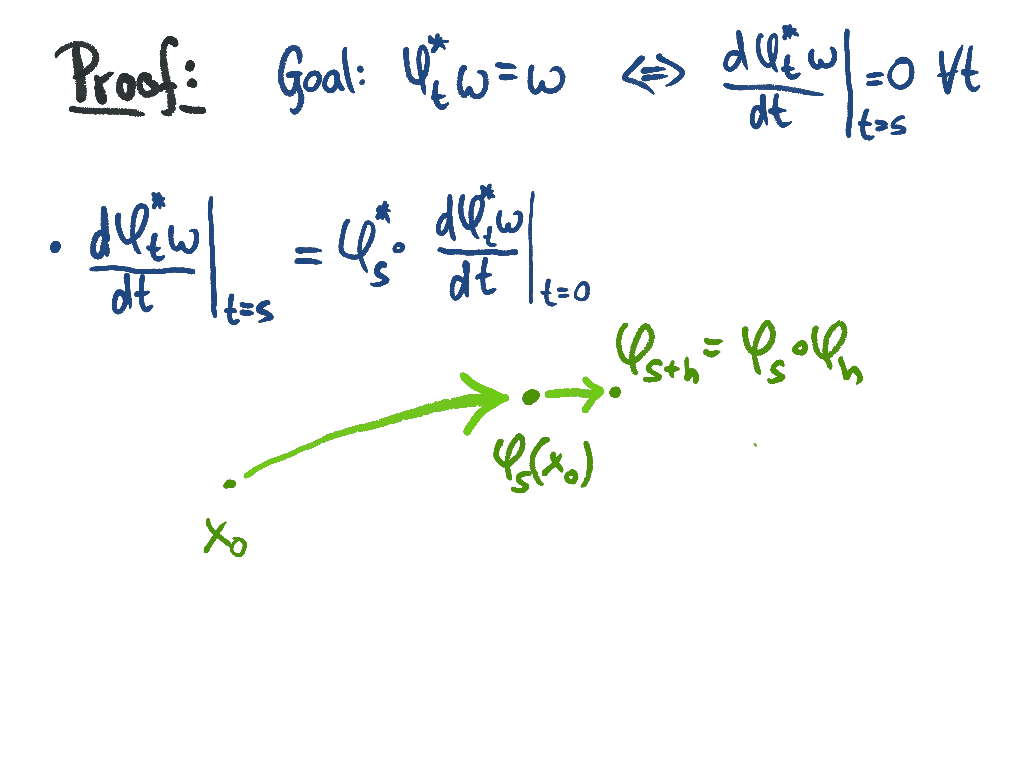 Proof: Goal: φ_t^* ω = ω ⟺ dφ_t^* ω / dt |_{t=s} = 0 ∀t
• dφ_t^* ω / dt |_{t=s} = φ_s^* • dφ_t^* ω / dt |_{t=0}
φ_{s+h} = φ_s ∘ φ_h
φ_s(x_0)
x_0